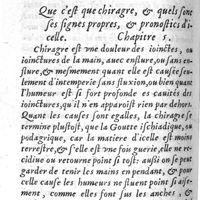 Que c'est que chiragre, & quels sont
ses signes propres, & pronostics d'i-
celle. Chapitre 5.
Chiragre est vne douleur des ioinctes, ou
ioinctures de la main, auec enflure, ou sans en-
flure, & mesmement quand elle est causée seu-
lement d'intemperie sans fluxion, ou bien quant
l'humeur est si fort profond es cauités des
ioinctures, qu'il n'en apparoist rien par dehors.
Quant les causes sont egalles, la chiragre se
termine plustost, que la Goutte ischiadique, ou
podagrique, car la matiere d'icelle est moins
terrestre, & s'elle est vne fois guerie, elle ne re-
cidine ou retourne point si tost: aussi on se peut
garder de tenir les mains en pendant, & pour
celle cause les humeurs ne fluent point si aise-
ment, comme elles font sus les anches, &